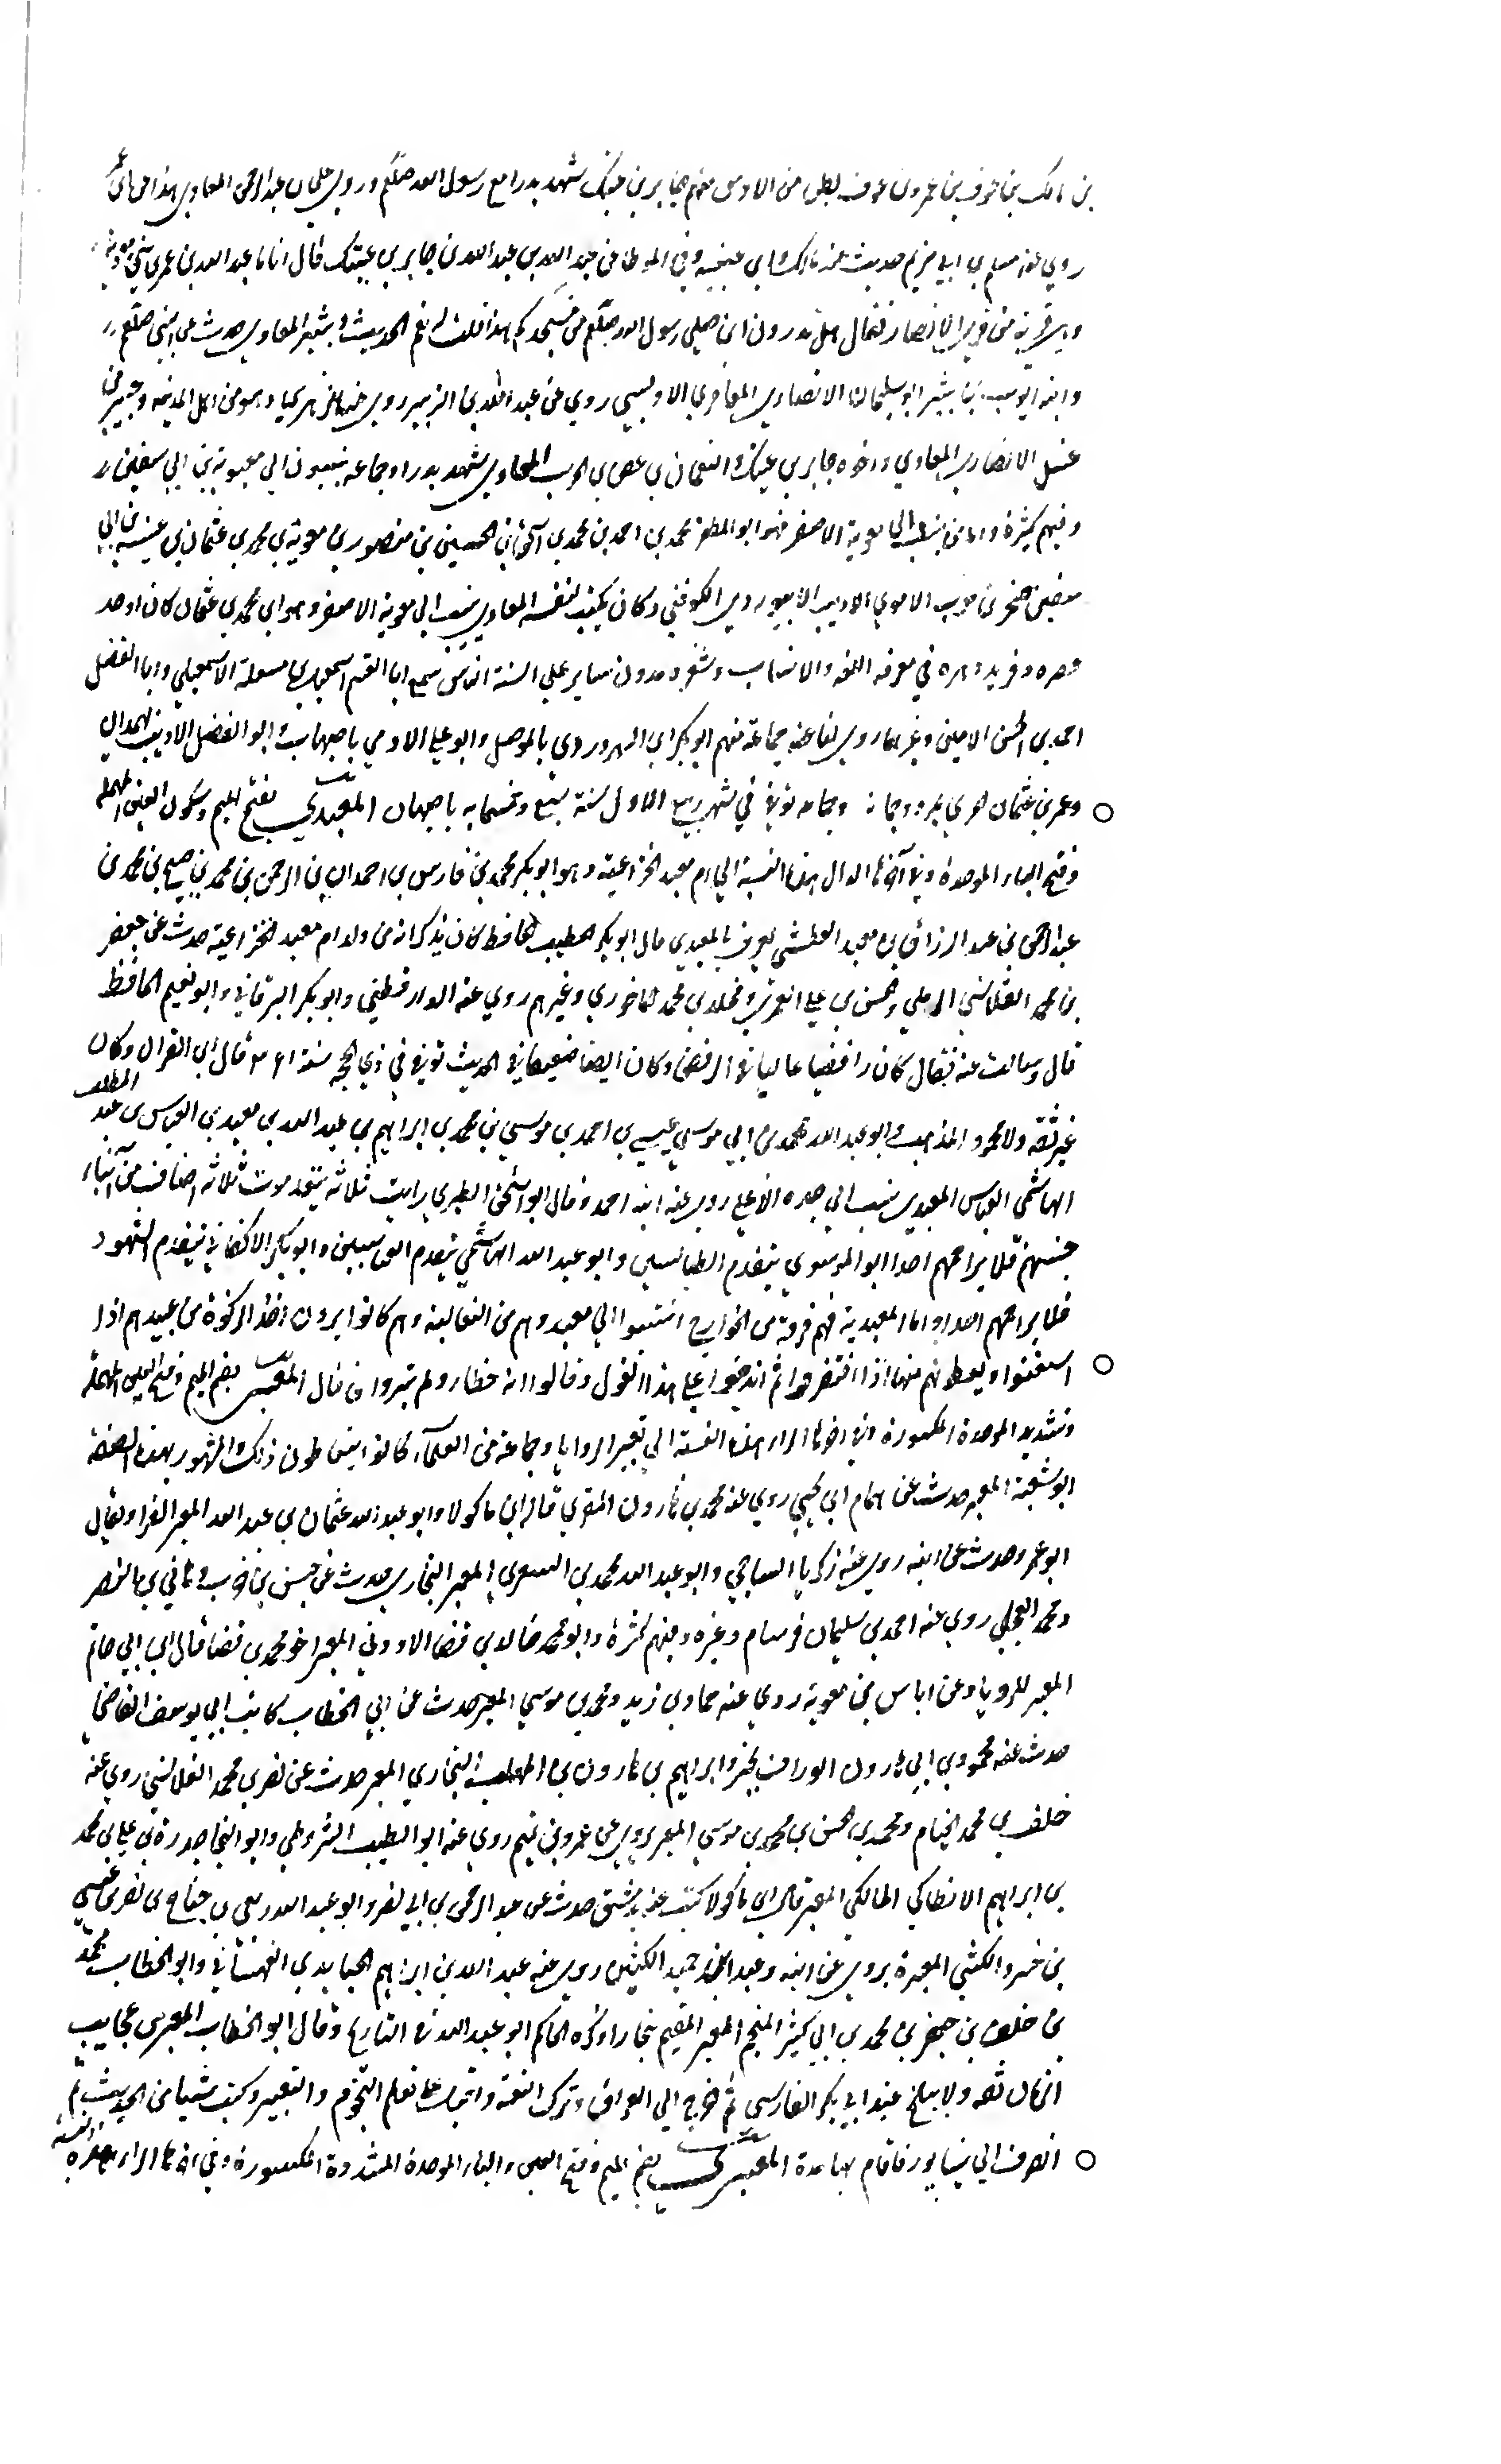 بن مالك بن عوف بن عمرو بن عوف بطن من الاوس منهم جابر بن عتيك شهد بدرا مع رسول الله صلعم وروى علي بن عبد الرحمن المعاوي هذا عن ابن عمر
روي عنه مسلم بن ابي مريم حديثه عند مالك وابن عيينة وفي الموطا عن عبد الله بن عبد الله بن جابر بن عتيك قال اتانا عبد الله بن عمر في بني معوية
وهي قرية من قرى الانصار فقال هل تدرون اين صلى رسول الله صلعم من مسجدكم هذا فقلت له نعم الحديث وبشير المعاوي حدث عن النبي صلعم
وابنه ايوب بن بشير ابو سليمان الانصاري المعاوي الاوسي روي عن عبد الله بن الزبير روى عنه الزهري وهو من اهل المدينة وجبر بن
عتيك الانصاري المعاوي واخوه جابر بن عتيك والنعمان بن عصر بن الحرب المعاوي شهد بدرا وجماعة ينسبون الي معوية بن ابي سفين
وفيهم كثرة واما من ينسب الي معوية الاصغر فهو ابو المظفر محمد بن احمد بن محمد بن اسحق بن الحسين بن منصور بن معوية بن محمد بن عثمان بن عنبسة بن ابي
سفين صخر بن حرب الاموي الاديب الابيوردي الكوفني وكان يكتب لنفسه المعاوي ينسب الي معوية الاصغر وهو ابن محمد بن عثمان كان اوحد
عصره وفريد دهره في معرفة اللغة والانساب وشعره مدون ساير على السنة الناس سمع ابا القسم اسمعيل بن مسعدة الاسمعيلي وابا الفضل
احمد بن الحسن الامين وغيرهما روى لنا عنه جماعة منهم ابو بكر السهروردي بالموصل وابو علي الادمي باصبهان وابو الفضل الاديب بهمدان
وعمر بن عثمان وجماعة توفي في شهر ربيع الاول سنة سبع وخمسماية باصبهان المعبدي بفتح الميم وسكون العين المهملة
وفتح الباء الموحدة وفي آخرها الدال هذه النسبة الي ام معبد الخزاعية وهو ابو بكر محمد بن فارس بن حمدان بن عبد الرحمن بن محمد بن صبيح بن محمد بن
عبد الرحمن بن عبد الرزاق بن معبد العطشي يعرف بالمعبدي قال ابو بكر الخطيب الحافظ كان يذكر انه من ولد ام معبد الخزاعية حدث عن جعفر
بن محمد القلانسي الرملي وحسن بن علي المعمري ومخلد بن محمد الماخوري وغيرهم روي عنه الدارقطني وابو بكر البرقاني وابو نعيم الحافظ
قال وسالت عنه فقال كان رافضيا غاليا في الرفض وكان ايضا ضعيفا في الحديث توفي في ذي الحجة سنة ٣٦١ قال ابن الفرات وكان
غير ثقة ولا محمود المذهب وابو عبد الله محمد بن ابي موسي عيسي بن احمد بن موسي بن محمد بن ابراهيم بن عبد الله بن معبد بن العباس بن عبد المطلب
الهاشمي العباس المعبدي ينسب الي جده الاعلى روى عنه ابنه احمد وقال ابو اسحق الطبري رايت ثلاثة يتقدمون ثلاثة اصناف من ابناء
جنسهم فلا يزاحمهم احد ابو الموسوي يتقدم الطالبيين وابو عبد الله الهاشمي يتقدم العباسيين وابو بكر الاكفاني يتقدم الشهود
فلا يزاحمهم احد واما المعبدية فهم فرقة من الخوارج انتسبوا الي معبد وهم من الثعالبة وهم كانوا يرون اخذ الزكوة من عبيدهم اذا
استغنوا ويعطونهم منها اذا افتقروا ثم علي هذا القول وقالوا انه خطا ولم يتبروا قال المعبر بضم الميم وفتح العين المهملة
وتشديد الموحدة المكسورة وفي اخرها الراء هذه النسبة الي تعبير الرؤيا وجماعة من العلماء كانوا يتعاطون ذلك والمشهور بهذه الصنعة
ابو شعبة المعبر حدث عن همام ابي يحيي روي عنه محمد بن هارون المقري قاله ابن ماكولا وابو عبد الله عثمان بن عبد الله المعبر الفرا ويقال
ابو عمرو حدث عن ابنه روى عنه زكريا الساجي وابو عبد الله محمد بن المعبر البخاري حدث عن حسن بن حرب وهاني بن النضر
ومحمد العجلي روي عنه احمد بن سليمان وغيره وفيهم كثرة وابو محمد خالد بن الاردني المعبر اخو محمد بن قضا قال ابن ابي حاتم
المعبر للرويا وعن اياس بن معوية روي عنه حماد بن زيد ومحمد بن موسي المعبر حدث عن ابي الخطاب كاتب ابي يوسف القاضي
حدث عنه محمود بن ابي هارون الوراق وابراهيم بن هارون بن المهلب البخاري المعبر حدث عن نصر بن محمد القلانسي روي عنه
خلف بن محمد الخيام ومحمد بن حسن بن محمد بن موسي المعبر يروي عن عمرو بن تميم روي عنه ابو الطيب الشروطي وابو النجا بدر بن علي بن محمد
بن ابراهيم الانطاكي المالكي المعبر قال ابن ماكولا كتبت عنه بدمشق حدث عن عبد الرحمن بن ابي نصر وابو عبد الله بن جناح بن نصر بن عيسي
بن خسرو الكشي المعبر يروي عن ابيه وعبد بن حميد الكشي روى عنه عبد الله بن ابراهيم القهستاني وابو الخطاب محمد
بن خلف بن جعفر بن محمد بن ابي كثير المنجم المعبر المقيم ببخارا ذكره الحاكم ابو عبد الله في التاريخ وقال ابو الخطاب المعبر من عجايب
الزمان تفقه ولا ببلخ عند ابي بكر الفارسي ثم خرج الي العراق وترك الفقه واقبل علي تعلم النجوم والتعبير وكتب شيا من الحديث ثم
انصرف الي نيسابور فاقام بها مدة المعبري بضم الميم وفتح العين والباء الموحدة المشددة المكسورة وفي اخرها الراء هذه النسبة